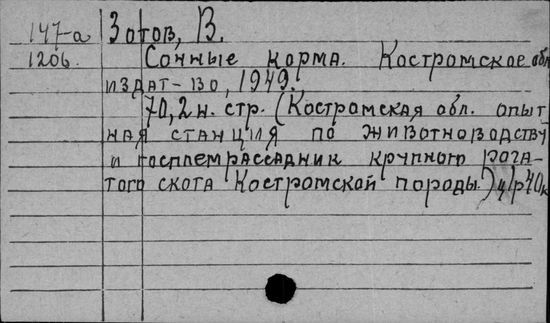 147-а Зотов, В.
1206. Сочные корма. Костромское обл.
издат-во, 1949.
70,2н. стр. (Костромская обл. опыт
ная станция по животноводству
и госплемрассадник крупного рога-
того скота Костромской породы.) ц1р40к